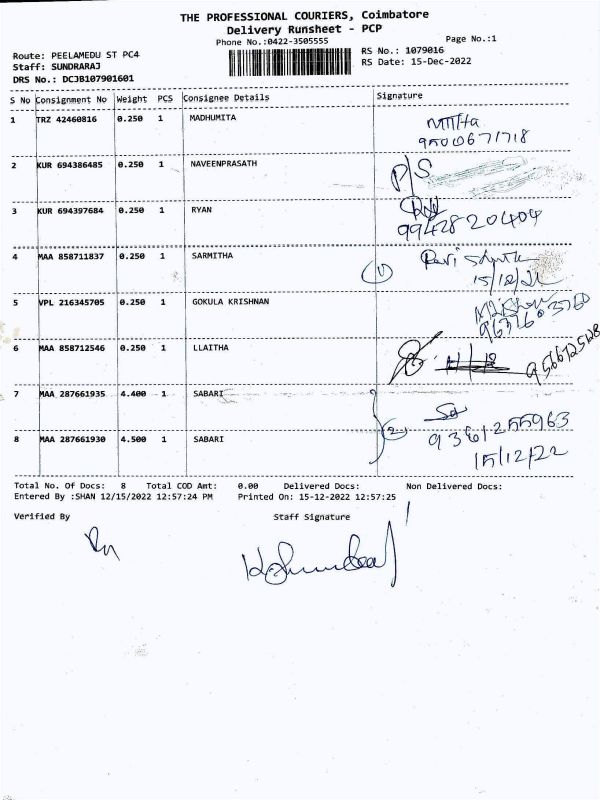 THE PROFESSIONAL COURIERS, Coimbatore
Delivery Runsheet - PCP
Phone No.:0422-3505555
Page No.:1
Route: PEELAMEDU ST PC4
Staff: SUNDRARAJ
DRS No.: DCJB107901601
RS No.: 1079016
RS Date: 15-Dec-2022
S No Consignment No Weight PCS Consignee Details Signature
1 TRZ 42460816 0.250 1 MADHUMITA
9500671718
2 KUR 694386485 0.250 1 NAVEENPRASATH
P/S
3 KUR 694397684 0.250 1 RYAN
9942820404
4 MAA 858711837 0.250 1 SARMITHA
5 VPL 216345705 0.250 1 GOKULA KRISHNAN
6 MAA 858712546 0.250 1 LLAITHA
7 MAA 287661935 4.400 1 SABARI
2
9361255963
8 MAA 287661930 4.500 1 SABARI
15/12/22
Total No. Of Docs: 8 Total COD Amt: 0.00 Delivered Docs: Non Delivered Docs:
Entered By :SHAN 12/15/2022 12:57:24 PM Printed On: 15-12-2022 12:57:25
Verified By Staff Signature